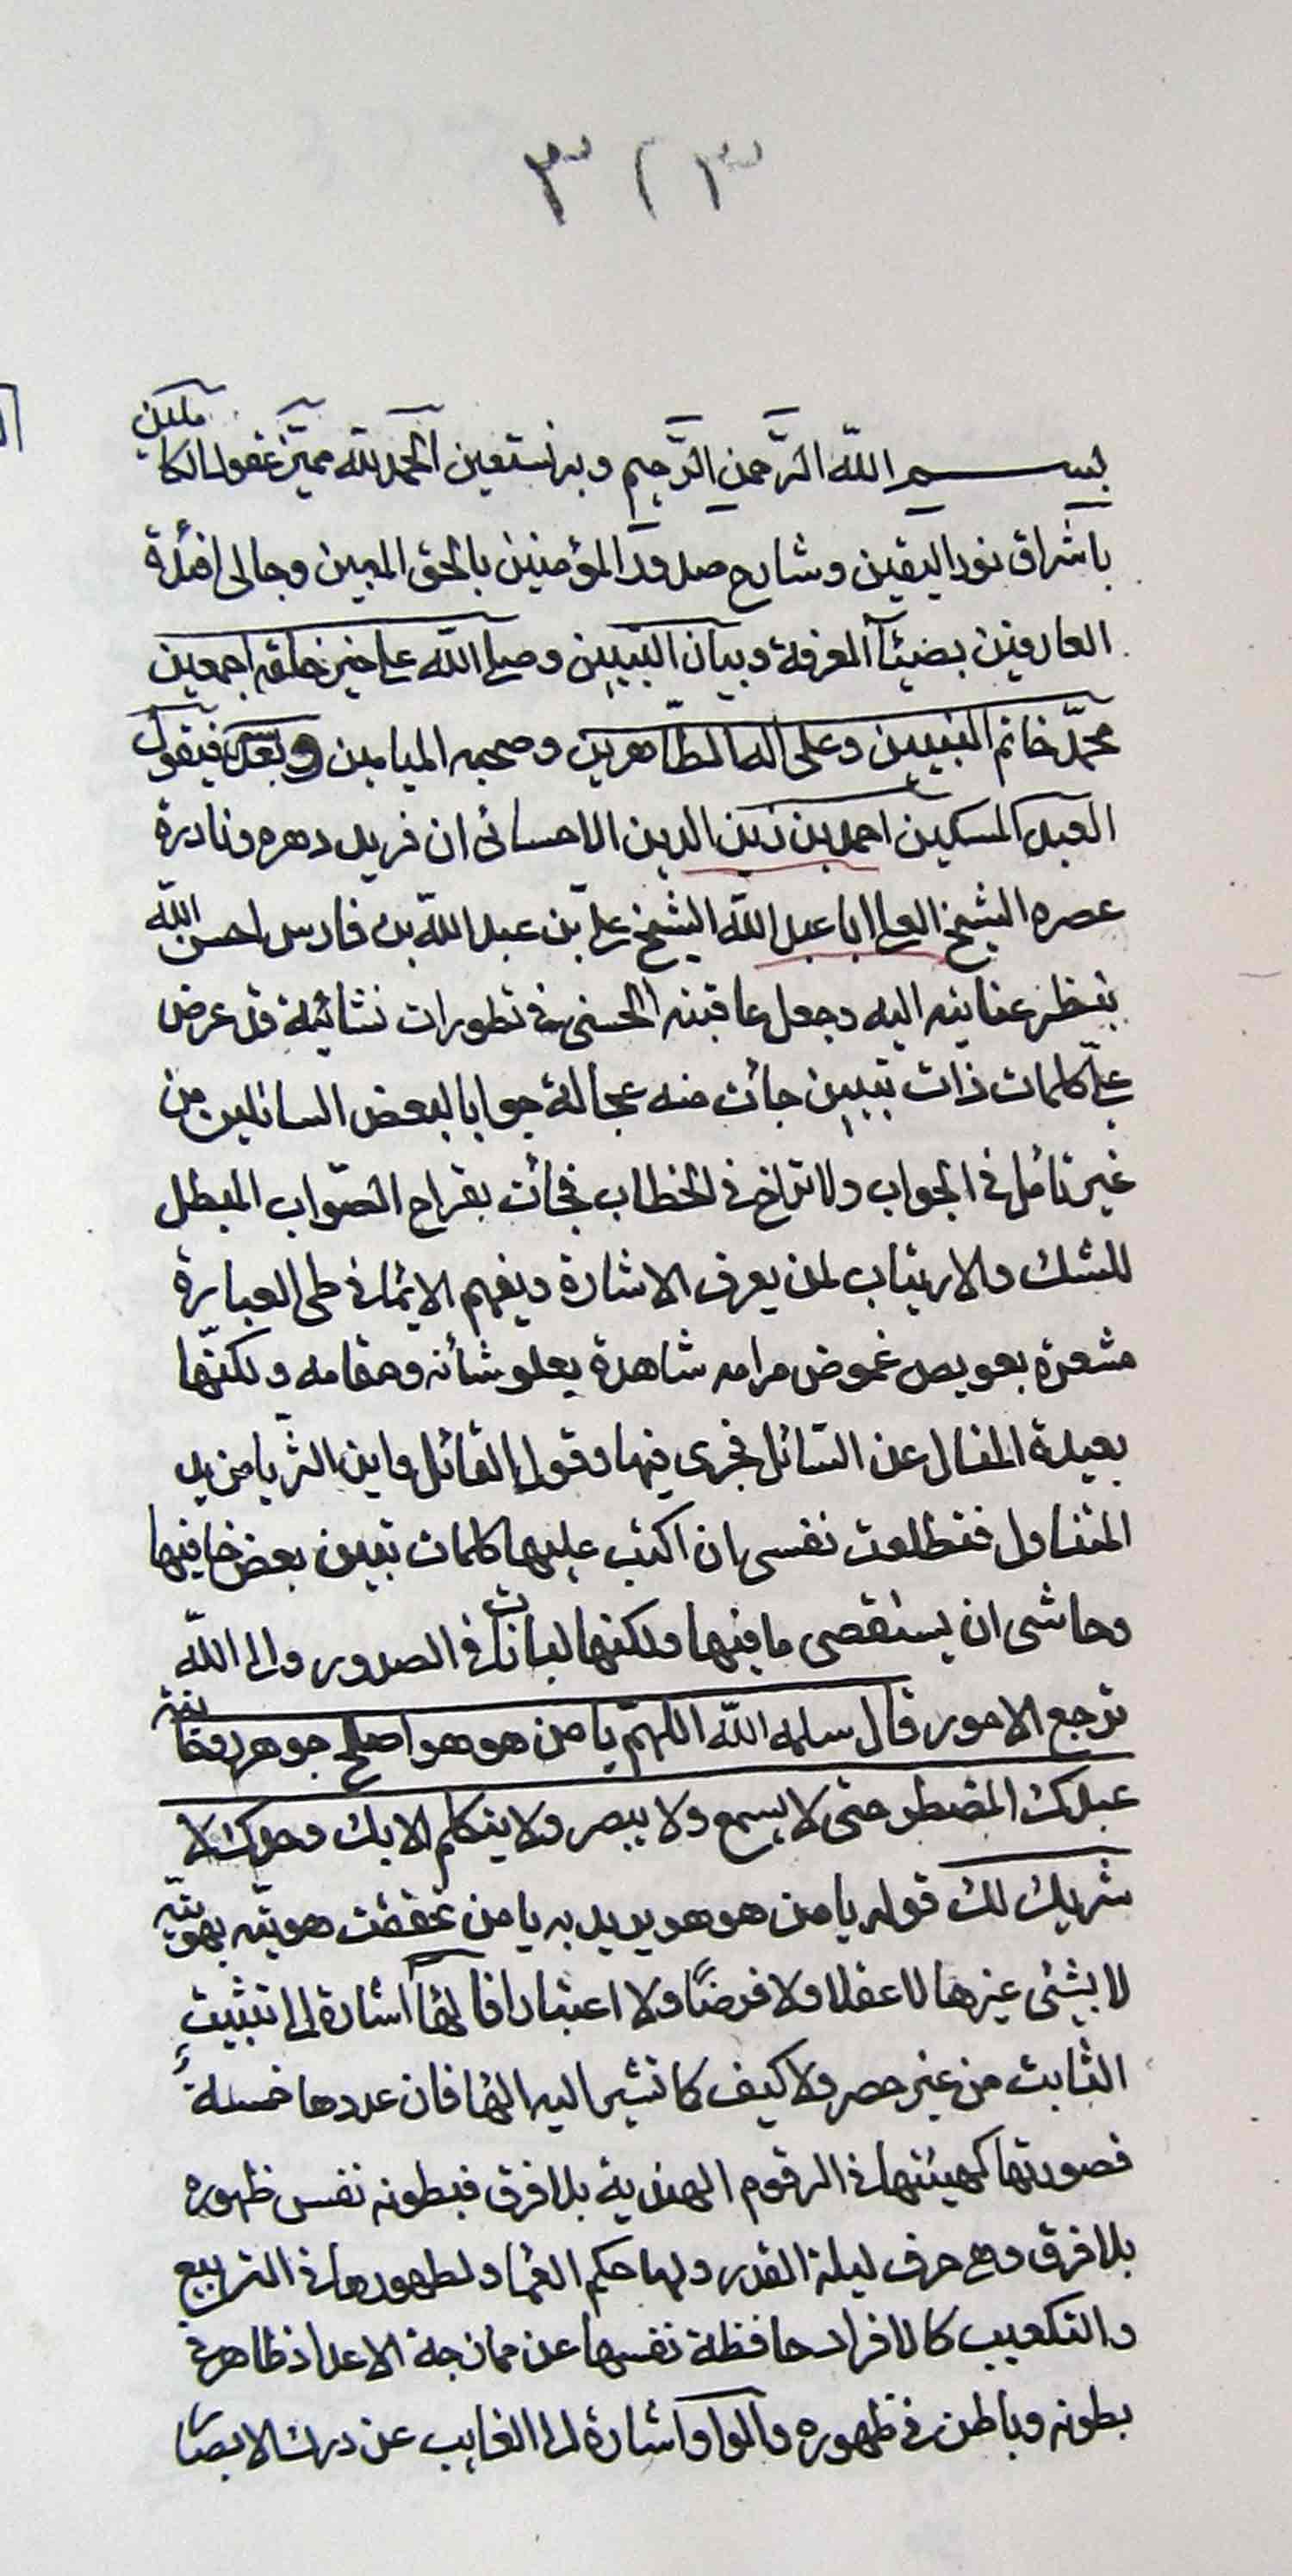 ٣٢٣
بسم الله الرحمن الرحيم وبه نستعين الحمد لله مميز عقول الكاملين
باشراق نور اليقين وشارح صدور المؤمنين بالحق المبين وجالى افئدة
العارفين بضيآء المعرفة وبيان التبيين وصلى الله على خير خلقه اجمعين
محمّد خاتم النبيين وعلى اله الطاهرين وصحبه الميامين وبعد فيقول
العبد المسكين احمد بن زين الدين الاحسائى ان فريد دهره ونادرة
عصره الشيخ العلى ابا عبد الله الشيخ على بن عبد الله بن فارس احسن الله
بنظر عنايته اليه وجعل عاقبته الحسنى فى تطورات نشائيه قد عرض
علىّ كلمات ذات تبيين جائت منه عجالة جوابا لبعض السائلين من
غير تأمل فى الجواب ولا تراخ فى الخطاب فجائت بقراح الصّواب المبطل
للشك والارتياب لمن يعرف الاشارة ويفهم الايماء فى طى العبارة
مشعرة بعويص غموض مرامه شاهدة بعلو شأنه ومقامه ولكنّها
بعيدة المنال عن السائل فجرى فيها وقول القائل واين الثريا من يد
المتناول فتطلعت نفسى ان اكتب عليها كلمات تبين بعض خافيها
وحاشى ان يستقصى ما فيها ولكنها لبانات فى الصدور والى الله
ترجع الامور قال سلمه الله اللهمّ يا من هو هو اصلح جوهر
عبدك المضطر حتى لا يسمع ولا يبصر ولا يتكلم الا بك وحدك لا
شريك لك قوله يا من هو هو يريد به يا من تحققت هويته بهويّته
لا بشئى غيرها لا عقلا ولا فرضًا ولا اعتبارا فالهآء اشارة الى تثبيت
الثابت من غير حصر ولا كيف كما تشير اليه الهاء فان عددها خمسة
فصورتها كهيئتها فى الرقوم الهندية بلا فرق فبطونه نفس ظهوره
بلا فرق وهى حرف ليلة القدر ولها حكم العماء ولظهورها فى التربيع
والتكعيب كالافراد حافظة نفسها عن ممازجة الاعداد ظاهرة
بطونه وباطن فى ظهوره والواو اشارة الى الغايب عن درك الابصار